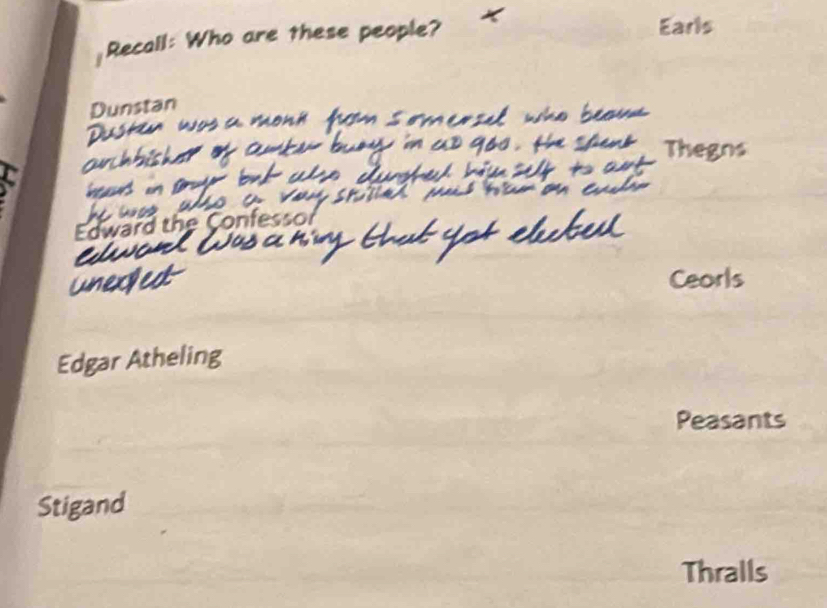 Recall: Who are these people?
Earls
Dunstan
Dustan was a monk from Somersel who became
archbishop of in AD 960. the spent
Thegns
hours in but also himself to art
he was also a very skilled an
Edward the Confessor
edward was a king that got elected
unexpect
Ceorls
Edgar Atheling
Peasants
Stigand
Thralls